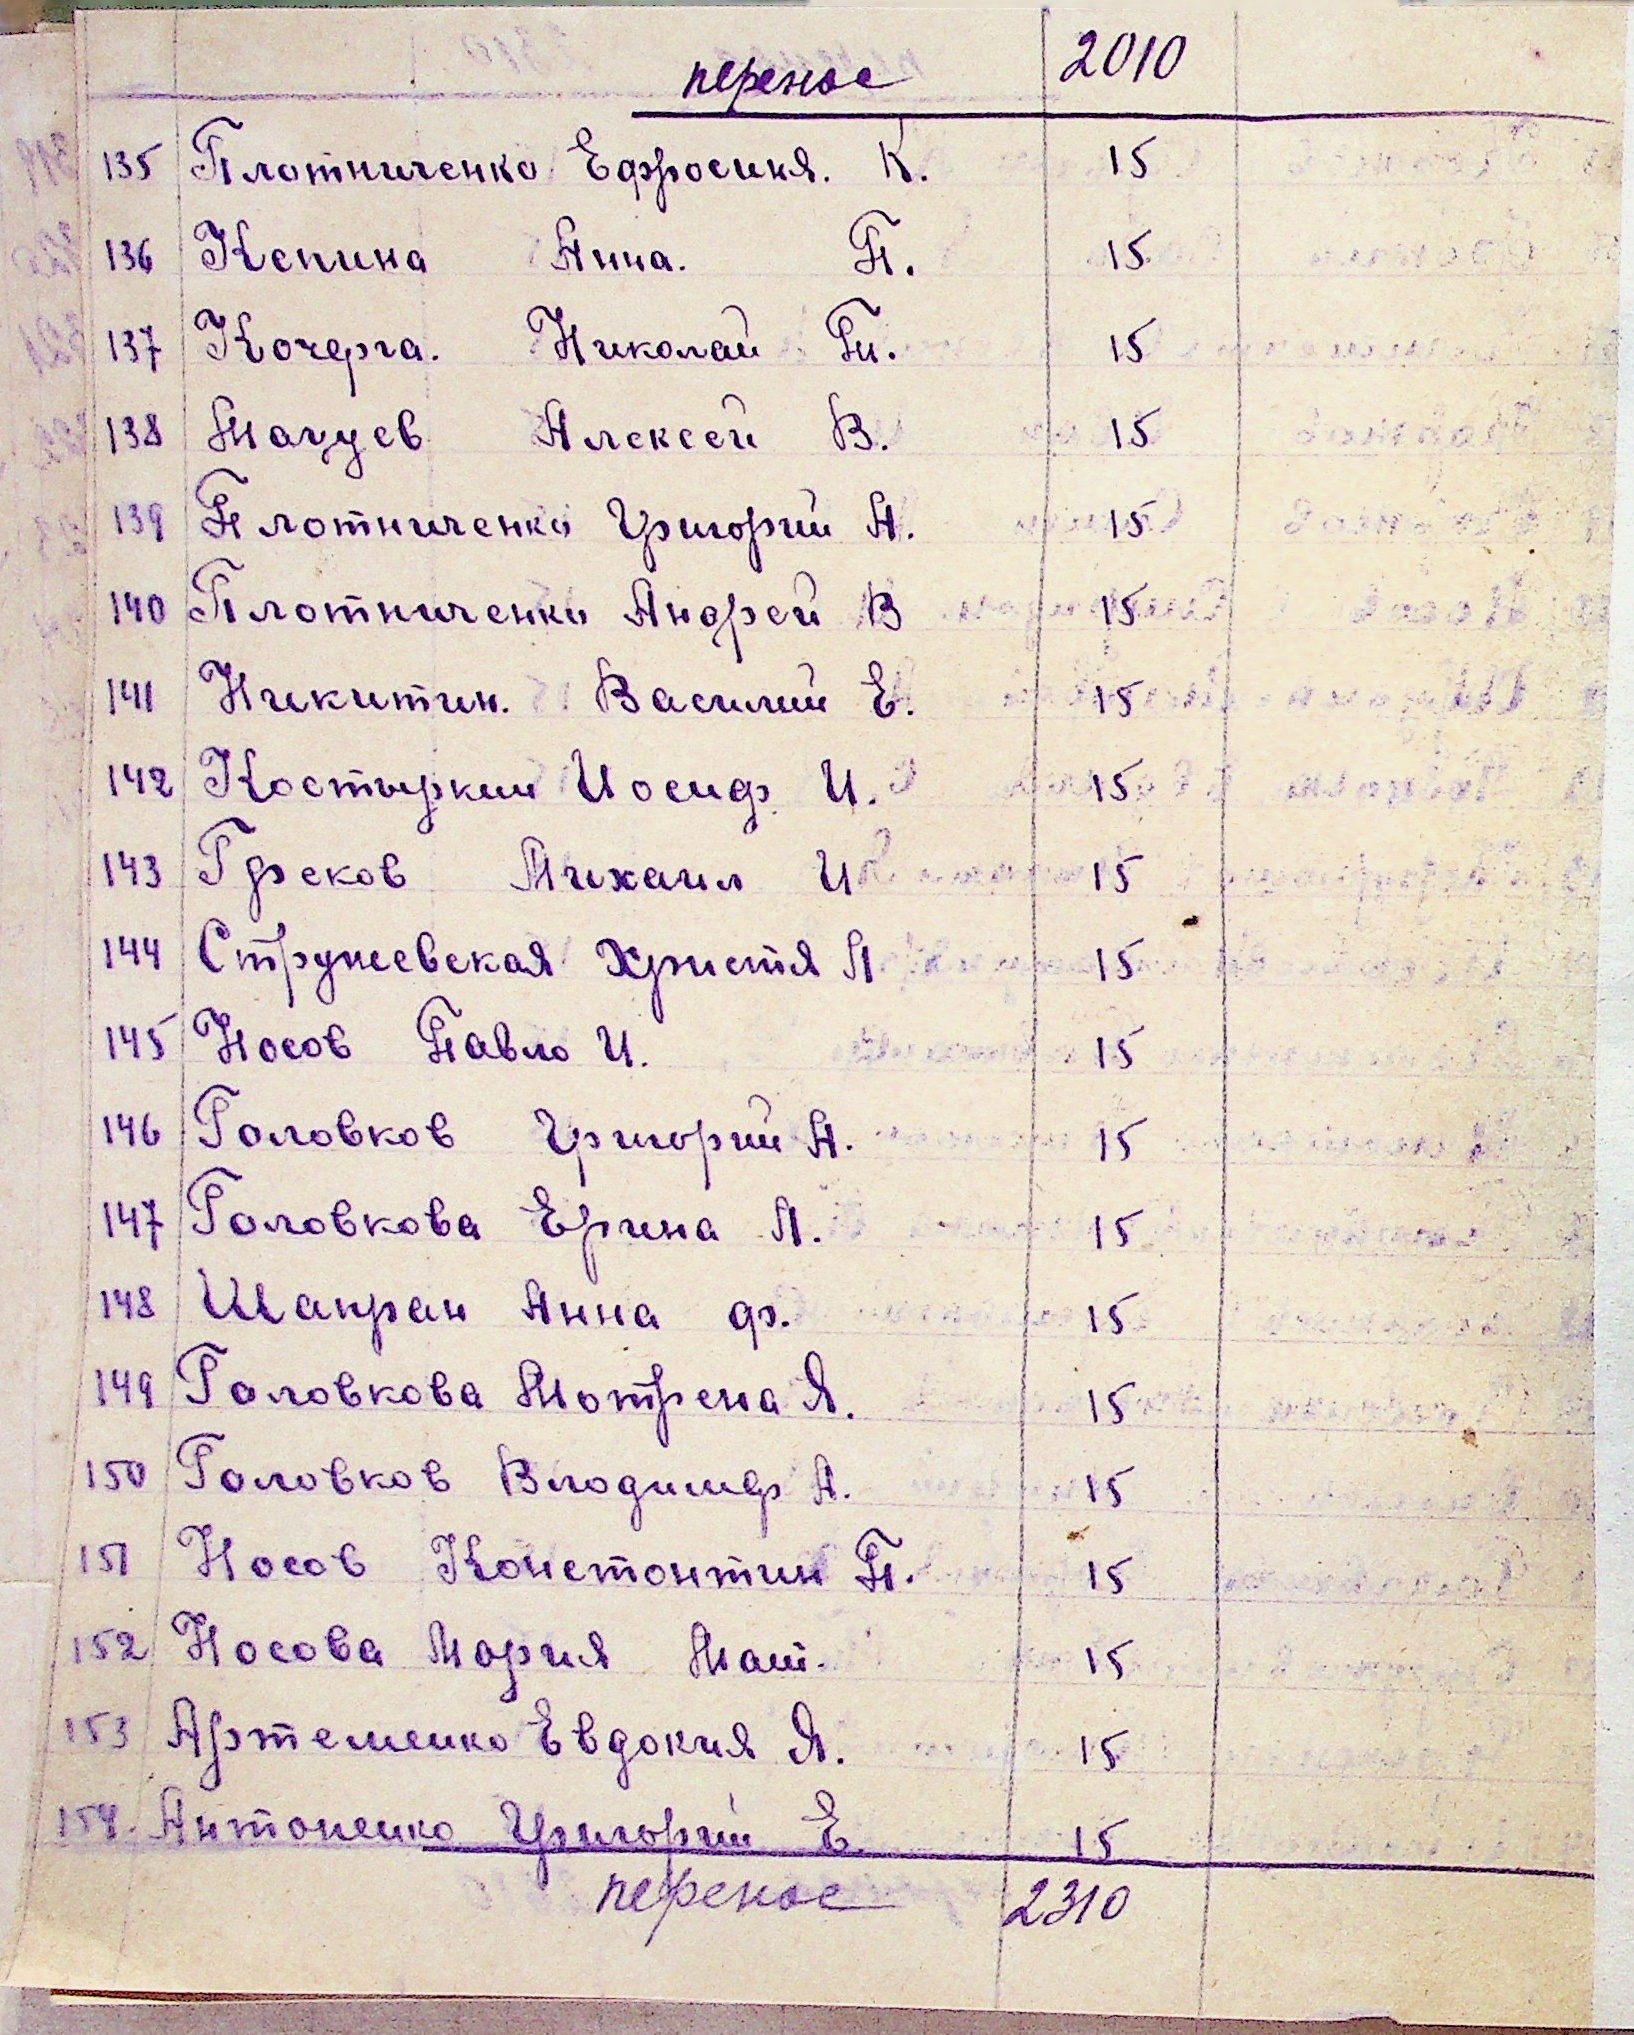 перенос 2010
135 Плотниченко Ефросиня. К. 15
136 Кепина Анна. П. 15
137 Кочерга. Николай Гн. 15
138 Мацуев Алексей В. 15
139 Плотниченко Григорий А. 15
140 Плотниченко Андрей В 15
141 Никитин. Василий Е. 15
142 Костыркин Иосиф И. 15
143 Греков Михаил И 15
144 Стружевская Христя А 15
145 Носов Павло И. 15
146 Головков Григорий А. 15
147 Головкова Ерина А. 15
148 Шапран Анна ф. 15
149 Головкова Мотрена Я. 15
150 Головков Владимир А. 15
151 Носов Константин П. 15
152 Носова Мария Мат. 15
153 Артеменко Евдокия Я. 15
154. Антоненко Григорий Е. 15
перенос 2310